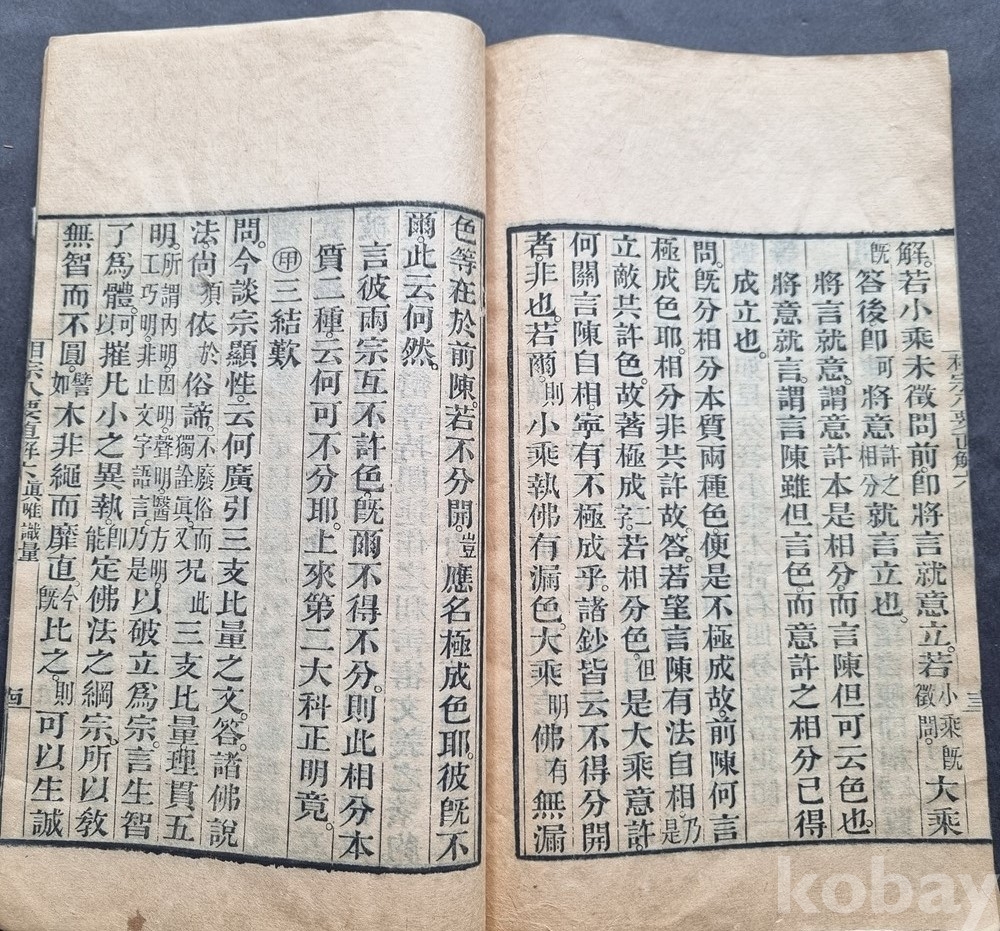 解。若小乘未徵問前。卽將言就意立。若小乘旣徵問。大乘
旣答後。卽可將意許之相分就言立也。
將言就意。謂意許本是相分。而言陳但可云色也。
將意就言。謂言陳雖但言色。而意許之相分已得
成立也。
問。旣分相分本質兩種色便是不極成故。前陳何言
極成色耶。相分非共許故。答。若望言陳有法自相。乃是
立敵共許色。故著極成二字。若相分色。但是大乘意許。
何關言陳自相。寧有不極成乎。諸鈔皆云不得分開
者。非也。若爾。則小乘執佛有漏色。大乘明佛有無漏
色等在於前陳。若不分開。豈應名極成色耶。彼旣不
爾。此云何然。
言彼兩宗互不許色。旣爾不得不分。則此相分本
質二種。云何可不分耶。上來第二大科正明竟。
㊞三結歎
問。今談宗顯性。云何廣引三支比量之文。答。諸佛說
法。尙須依於俗諦。不廢俗而獨詮眞。又況此三支比量理貫五
明。所謂內明。因明。聲明。醫方明。工巧明。非止文字語言。乃是以破立爲宗。言生智
了爲體。可以摧凡小之異執。卽能定佛法之綱宗。所以敎
無智而不圓。譬如木非繩而靡直。今旣比之。則可以生誠
相宗八要直解六 眞唯識量